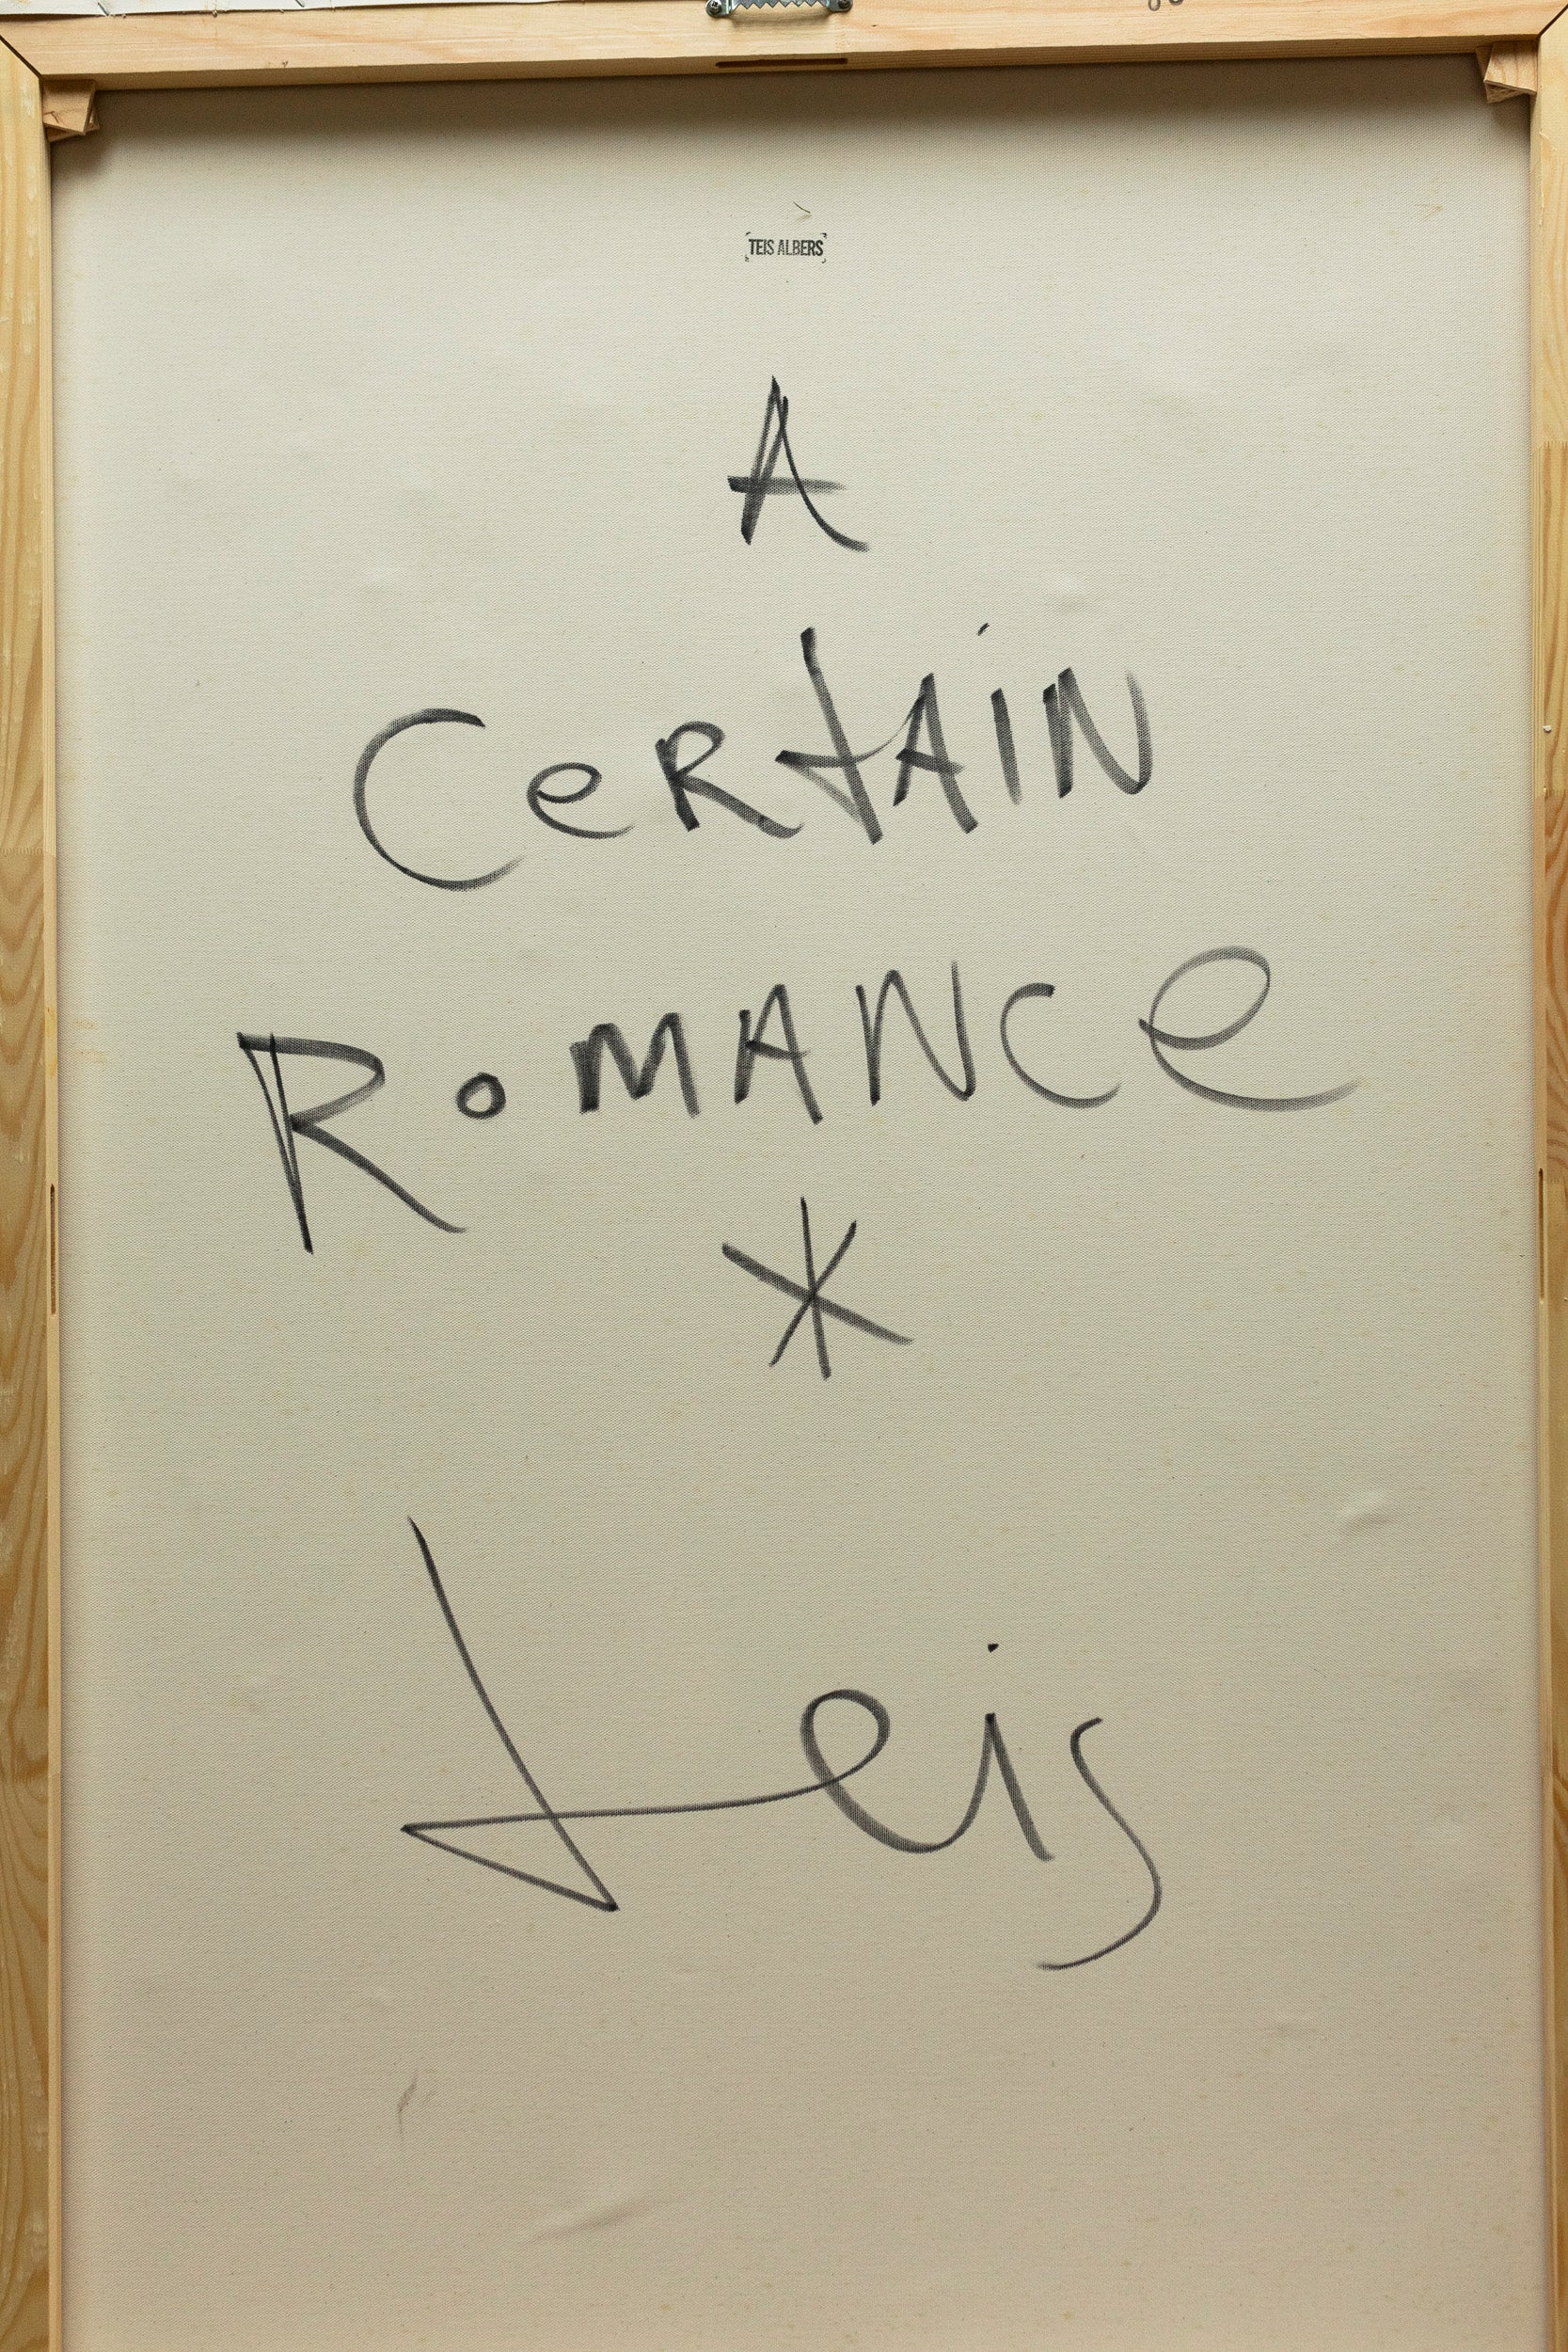 TEIS ALBERS
A
CeRtAiN
RoMANCe
*
Teis